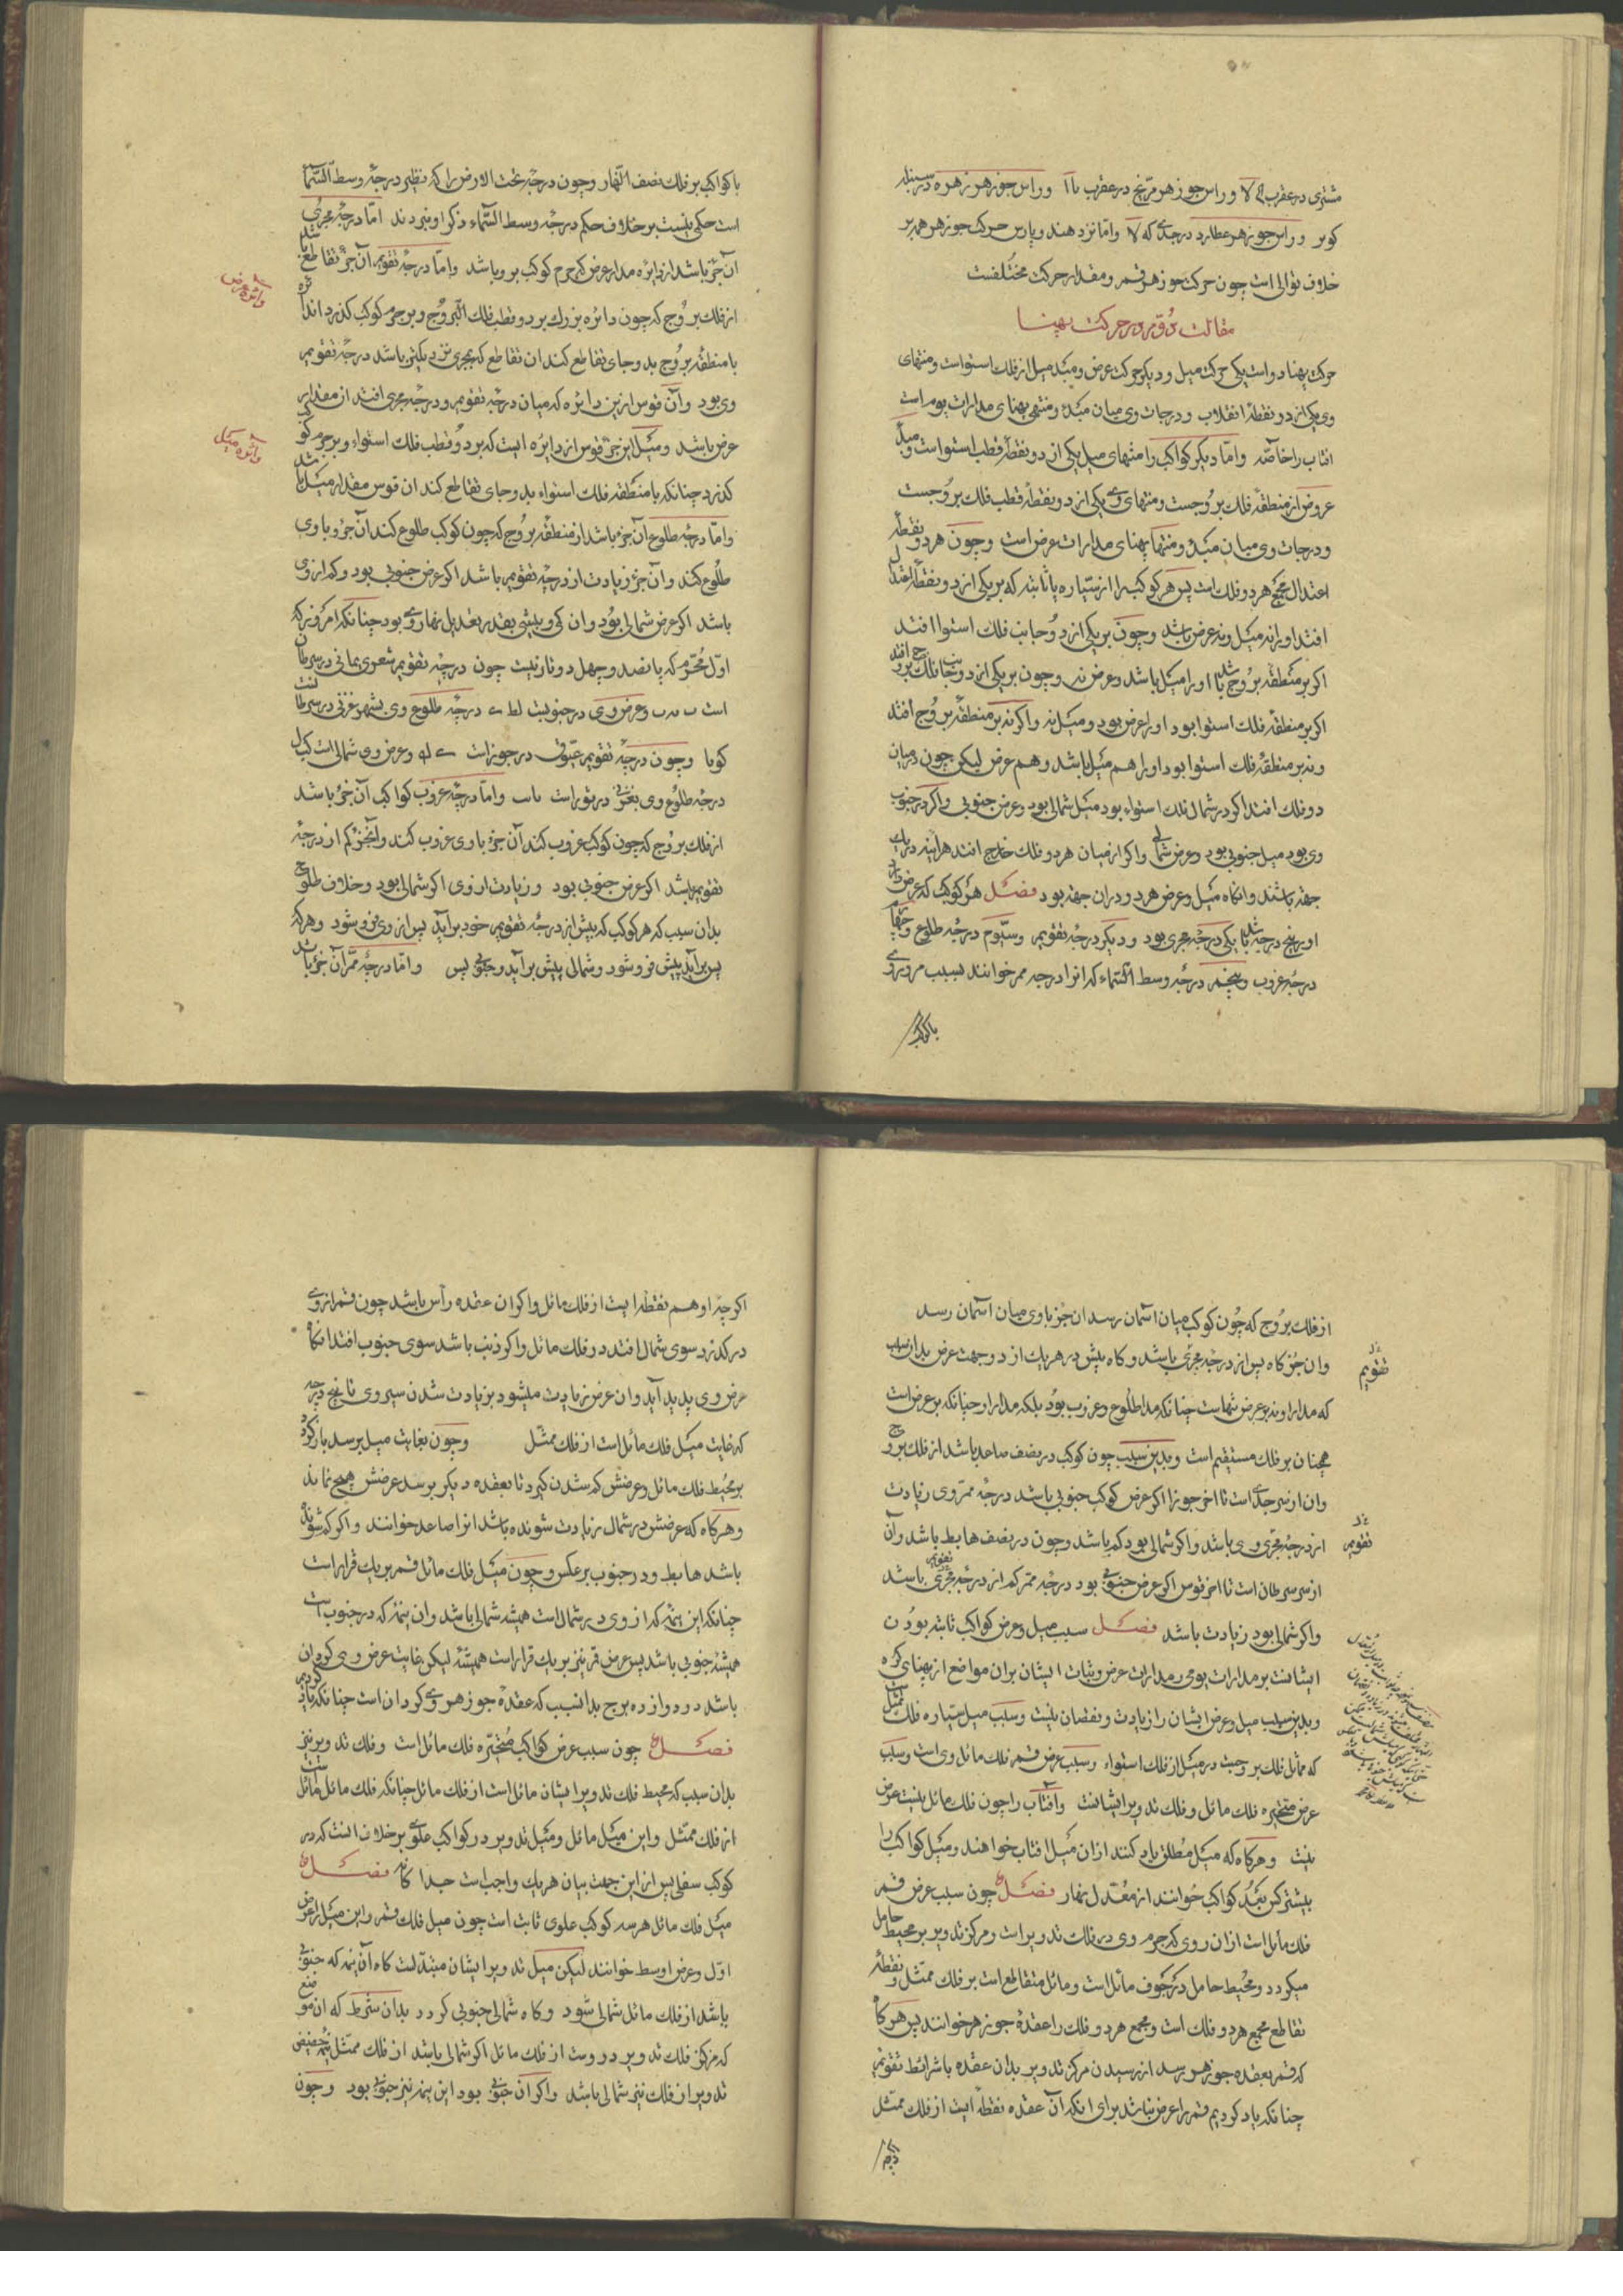 مشتری در عقرب ی لا و راس جوزهر مریخ در عقرب ما ا و راس جوزهر زهره در سنبله
و راس جوزهر عطارد در جدی که لا و اما نزد هند و پارس حرکت جوزهر همه بر
خلاف توالی است چون حرکت جوزهر قمر و مقدار حرکت مختلفست
مقالت دوم در حرکت پهنا
حرکت پهنا دو است یکی حرکت میل و دیگر حرکت عرض و مبدء میل از فلک استوا است و منتهای
وی یکی از دو نقطهٔ انقلاب و درجات وی میان مبدء و منتهی پهنای مدارات یوم است
افتاب را خاصه و اما دیگر کواکب را منتهای میل یکی از دو نقطهٔ قطب استوا است و مبدأ
عروض از منطقهٔ فلک بروجست و منتهای وی یکی از دو نقطهٔ قطب فلک بروجست
و درجات وی میان مبدء و منتها پهنای مدارات عرض است و چون هر دو نقطهٔ
اعتدال مجمع هر دو فلک است پس هر کوکب را از سیاره یا ثابته که بر یکی از دو نقطهٔ اعتدال
افتد او را نه میل و نه عرض باشد و چون بر یکی از دو جانب فلک استوا افتد
اکر بر منطقهٔ بروج باشد او را میل باشد و عرض نه و چون بر یکی از دو جانب فلک بروج افتد
اکر بر منطقهٔ فلک استوا بود او را عرض بود و میل نه و اکر نه بر منطقهٔ بروج افتد
و نه بر منطقهٔ فلک استوا بود او را هم میل باشد و هم عرض لیکن چون در میان
دو فلک افتد اکر در شمال فلک استواء بود میل شمالی بود و عرض جنوبی و اکر در جنوب
وی بود میل جنوبی بود و عرض شمالی و اکر از میان هر دو فلک خارج افتد هراینه در یک
جهة باشند و انکاه میل و عرض هر دو در ان جهة بود فصل هر کوکب که عرض دارد
او را پنج درجه باشد یکی درجهٔ مجری بود و دیکر درجهٔ تقویم و سیوم درجهٔ طلوع و چهارم
درجهٔ غروب و پنجم درجهٔ وسط السماء که انرا درجهٔ ممر خوانند بسبب مرور وی
با کوکب
با کواکب بر فلک نصف النهار و چون درجهٔ تحت الارض را که نظیر درجهٔ وسط السماء
است حکمی نیست بر خلاف حکم درجهٔ وسط السماء ذکر او نبردند اما درجهٔ مجری
آن جزء باشد از دایره مدار عرض که جرم کوکب برو باشد و اما درجهٔ تقویم آن جزء تقاطع باشد
دائرهٔ عرض
از فلک بروج که چون دائره بزرک بر دو قطب فلک البروج و بر جرم کوکب کذرد اندائره
با منطقهٔ بروج بدو جای تقاطع کند ان تقاطع که بمجری نزدیکتر باشد درجهٔ تقویم
وی بود و آن قوس ازین دائره که میان درجهٔ تقویم و درجهٔ مجری افتد ان مقدار
عرض باشد و میل این جزء قوس از دایره ایست که بر دو قطب فلک استواء و بر جرم کوکب
دائرهٔ میل
کذرد چنانکه با منطقهٔ فلک استواء بدو جای تقاطع کند ان قوس مقدار میل باشد
و اما درجهٔ طلوع آن جزء باشد از منطقهٔ بروج که چون کوکب طلوع کند آن جزو با وی
طلوع کند و آن جزء زیادت از درجهٔ تقویم باشد اکر عرض جنوبی بود و کم از وی
باشد اکر عرض شمالی بود و ان کمی و بیشی بقدر تعدیل نهار وی بود چنانکه امروز که
اول محرم که پانصد و چهل دو تازیست چون درجهٔ تقویم شعری یمانی در سرطان
است ب و عرض وی در جنوبیت لط ی درجهٔ طلوع وی بشهر غزنی در سرطانست
و چون درجهٔ تقویم عیوق در جوزاست ی له و عرض وی شمالی است کب ل
درجهٔ طلوع وی بغزنی در ثور است و اما درجهٔ غروب کواکب آن جزء باشد
از فلک بروج که چون کوکب غروب کند آن جزء با وی غروب کند و آنجزء کم از درجهٔ
تقویم باشد اکر عرض جنوبی بود و زیادت از وی اکر شمالی بود و خلاف طلوع
بدان سبب که هر کوکب که پیش از درجهٔ تقویم خود برآید پس از وی فرو شود و هر که
پس برآید پیش فرو شود و شمالی پیش برآید و جنوبی پس و اما درجهٔ ممر آن جزء باشد
از فلک بروج که چون کوکب میان آسمان رسد ان جزء با وی میان آسمان رسد
وان جزء کاه پس از درجهٔ مجری باشد و کاه پیش در هر یک از دو جهت عرض بدان سبب
تقویم
که مدار او نه بر عرض تنهاست چنانکه مدار طلوع و غروب بود بلکه مدار او چنانکه بر عرض است
همچنان بر فلک مستقیم است و بدین سبب چون کوکب در نصف صاعد باشد از فلک بروج
وان از سر جدی است تا اخر جوزا اکر عرض کوکب جنوبی باشد درجهٔ ممر وی زیادت
از درجهٔ مجری وی باشد و اکر شمالی بود کم باشد و چون در نصف هابط باشد وآن
تقویم
از سر سرطان است تا اخر قوس اکر عرض جنوبی بود درجهٔ ممر کم از درجهٔ مجری تقویم باشد
واکر شمالی بود زیادت باشد فصل سبب میل و عرض کواکب ثابته بودن
ایشانست بر مدارات یومی و مدارات عرض و ثبات ایشان بران مواضع از پهنای کره
و بدین سبب میل و عرض ایشان را زیادت و نقصان نیست و سبب میل سیاره فلک ممثل است
که مماثل فلک بروجست در میل از فلک استواء و سبب عرض قمر فلک مائل وی است و سبب
عرض متحیره فلک مائل و فلک تدویر ایشانست و آفتاب را چون فلک مائل نیست عرض
نیست و هرکاه که میل مطلق یاد کنند ازان میل افتاب خواهند و میل کواکب را
بیشتر کس بعد کواکب خوانند از معدل نهار فصل چون سبب عرض قمر
فلک مائل است ازان روی که جرم وی در فلک تدویر است و مرکز تدویر بر محیط حامل
میکردد و محیط حامل در جوف مائل است و مائل متقاطع است بر فلک ممثل و نقطهٔ
تقاطع مجمع هر دو فلک است و مجمع هر دو فلک را عقدهٔ جوزهر خوانند پس هرکاه
که قمر بعقده جوزهر برسد از رسیدن مرکز تدویر بدان عقده با شرائط تقویم
چنانکه یاد کردیم قمر را عرض نباشد برای انکه آن عقده نقطهٔ ایست از فلک ممثل
اکرچه او هم نقطه ایست از فلک مائل و اکر ان عقده رأس باشد چون قمر از وی
درکذرد سوی شمال افتد در فلک مائل و اکر ذنب باشد سوی جنوب افتد انکاه
عرض وی پدید آید و ان عرض زیادت میشود بزیادت شدن سیر وی تا پنج درجه
که غایت میل فلک مائل است از فلک ممثل و چون بغایت میل برسد باز کردد
بر محیط فلک مائل و عرضش کم شدن کیرد تا بعقده دیکر برسد عرضش هیچ نماند
و هرکاه که عرضش در شمال زیادت شونده باشد انرا صاعد خوانند و اکر کم شونده
باشد هابط و در جنوب برعکس و چون میل فلک مائل قمر بر یک قرار است
چنانکه این نیمه که از وی در شمال است همیشه شمالی باشد و ان نیمه که در جنوب است
همیشه جنوبی باشد پس عرض قمر نیز بر یک قرار است همیشه لیکن غایت عرض وی کردان
باشد در دوازده برج بدانسبب که عقدهٔ جوزهر وی کردان است چنانکه یاد کردیم
فصل چون سبب عرض کواکب متحیره فلک مائل است و فلک تدویر نیز
بدان سبب که محیط فلک تدویر ایشان مائل است از فلک مائل چنانکه فلک مائل مائل است
از فلک ممثل و این میل مائل و میل تدویر در کواکب علوی بر خلاف انست که در
کوکب سفلی پس ازین جهت بیان هر یک واجب است جداگانه فصل
میل فلک مائل هر سه کوکب علوی ثابت است چون میل فلک قمر و این میل را عرض
اول و عرض اوسط خوانند لیکن میل تدویر ایشان مبتدلست کاه آن نیمه که جنوبی
باشد از فلک مائل شمالی شود و کاه شمالی جنوبی کردد بدان شرط که ان موضع
که مرکز فلک تدویر دروست از فلک مائل اکر شمالی باشد از فلک ممثل نیمهٔ حضیض
تدویر از فلک نیز شمالی باشد واکر آن جنوبی بود این نیمه نیز جنوبی بود و چون